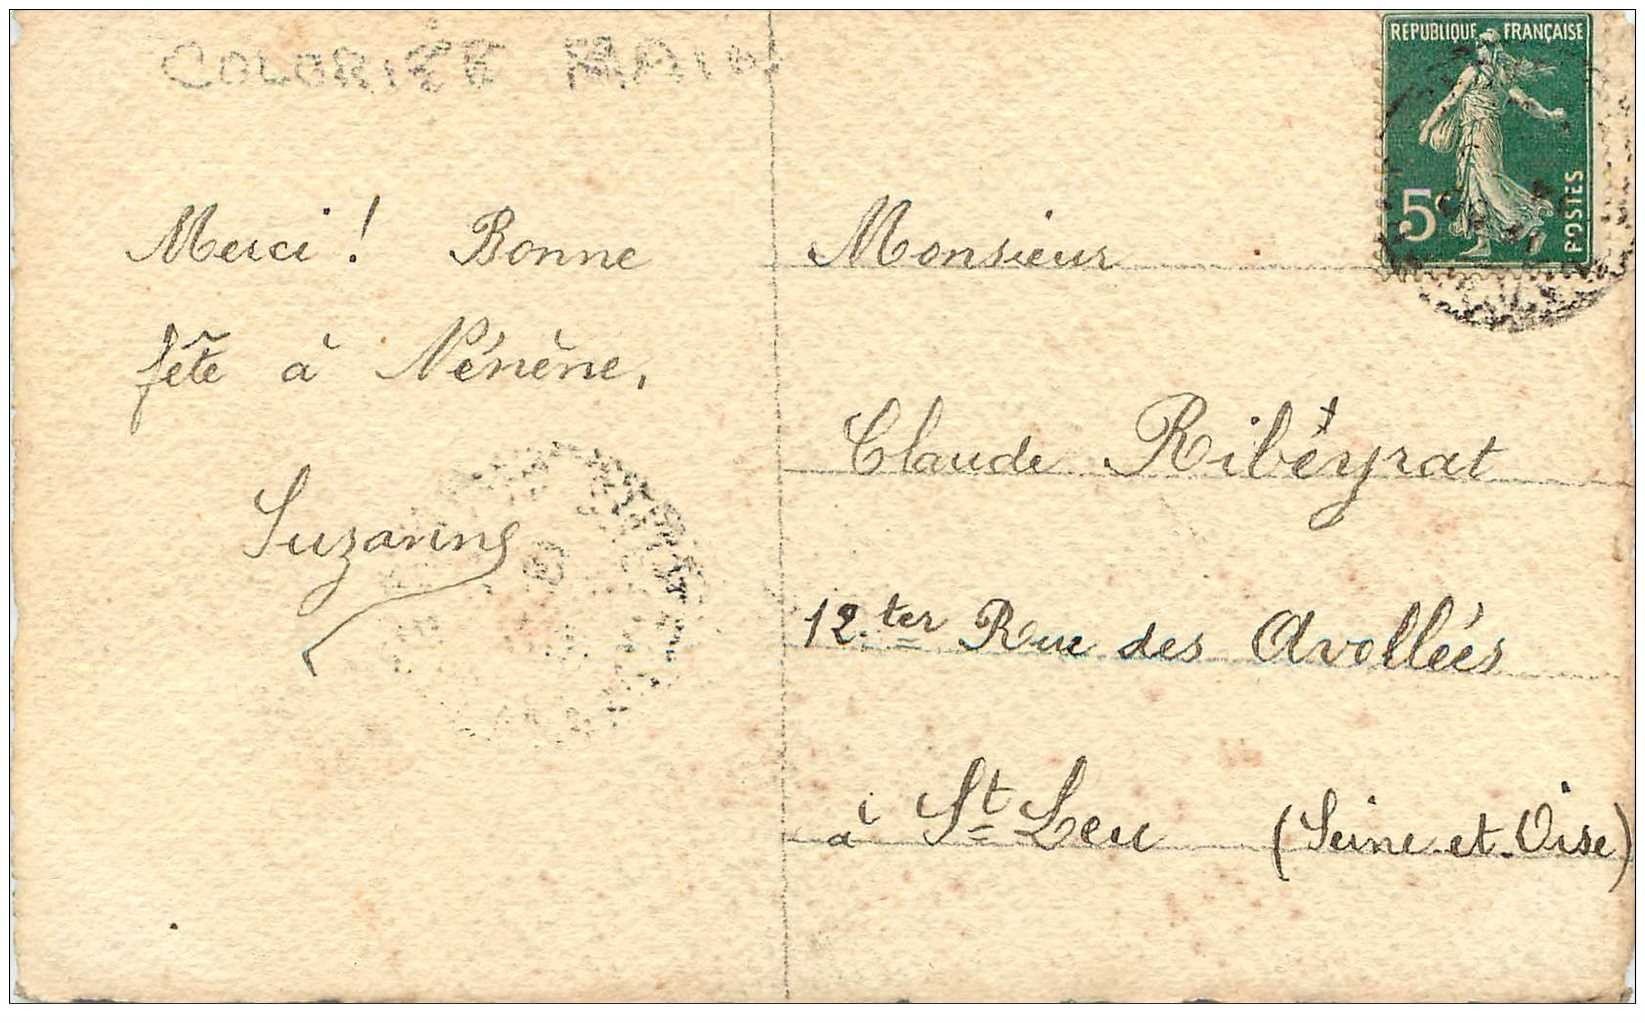 COLORIÉE MAIN
Merci ! Bonne
fête à Nénène,
Suzanne
REPUBLIQUE FRANÇAISE
5c
POSTES
Monsieur
Claude Ribèyrat
12.ter Rue des Avollées
à St Leu (Seine et Oise)